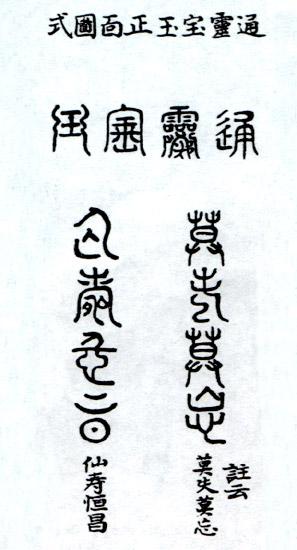 通靈宝玉正面圖式
通靈寶玉
莫失莫忘
註云
莫失莫忘
仙壽恒昌
仙寿恒昌